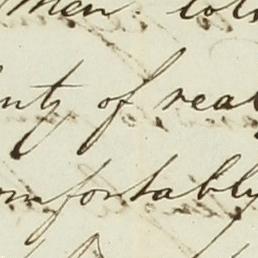 men told
nty of read
omfortably